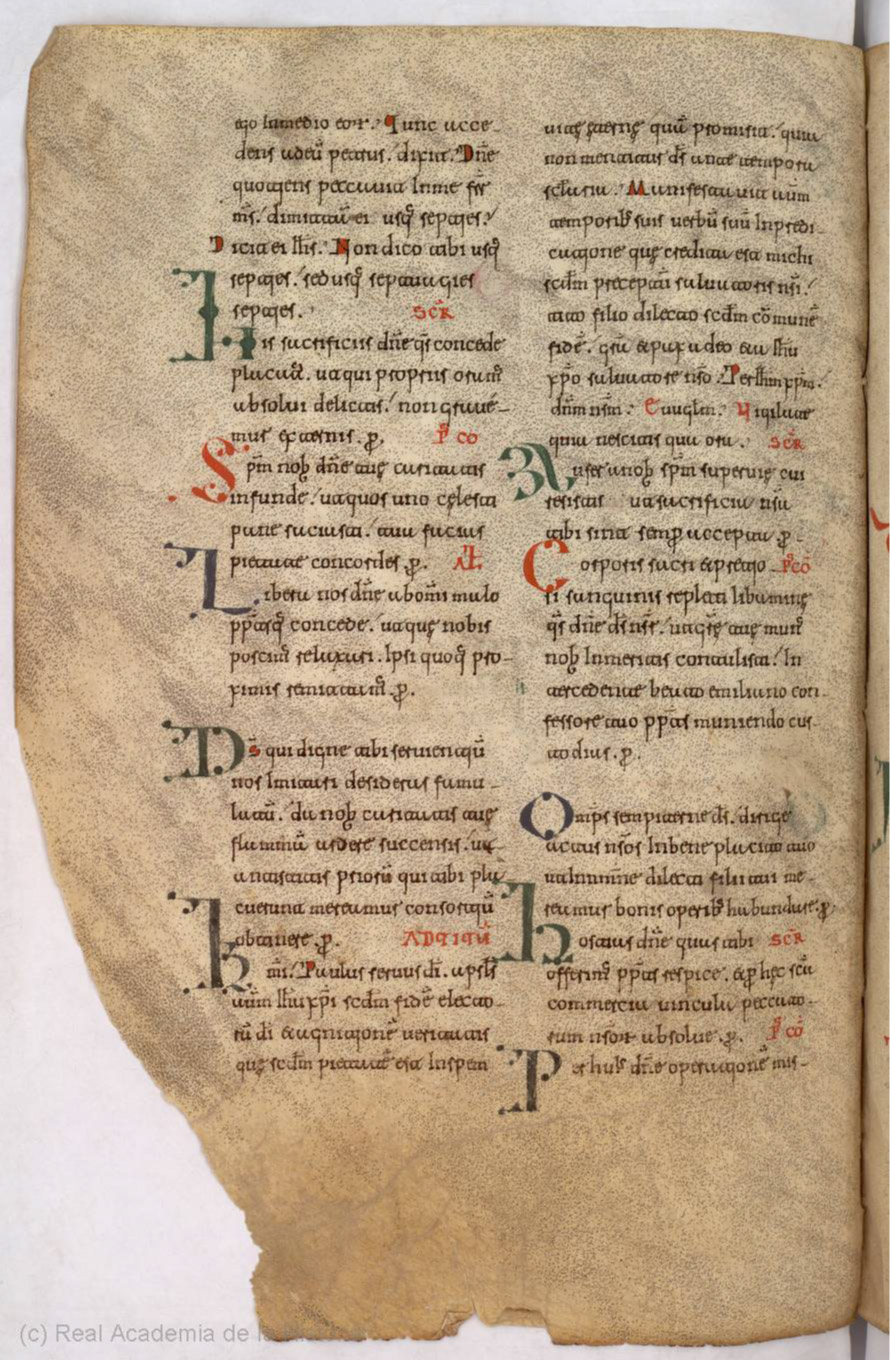 ego In medio eor̄. Tunc acce-
dens ad eū petrus. dixit. Dn̄e
quotiens peccauit In me fr̄
m̄s. dimittā ei usq; septies?
Dicit ei Ihs̄. Non dico tibi usq;
septies. sed usq; septuagies
septies. SCR̄
His sacrificiis dn̄e qs̄ concede
placat᷒. ut qui propriis oram᷒
absolui delictis. non graue-
mur externis. p̱. P̄ CO
Sp̄m nob̄ dn̄e tuę caritatis
infunde. ut quos uno cęlesti
pane saciasti. tua facias
pietate concordes p̱. AŁ
Libera nos dn̄e ab om̄i malo
pp̄tiusq; concede. ut quę nobis
poscim᷒ relaxari. Ipsi quoq; pro-
ximis remittam᷒. p̱.
Ds̄ qui digne tibi seruientiū
nos Imitari desideriis famu-
latū. da nob̄ caritatis tuę
flammā ardere succensis. ut
antistitis priorū qui tibi pla-
cuerunt mereamur consortiū
obtinere. p̱. AD TITŪ
K mi. Paulus seruus dī. apslš
aūm Ihū xpi scdm̄ fidē electo-
rū di & agnitionē ueritatis
quę scdm̄ pietatē est In spem
uitę ęternę quā promisit. qui
non mentitur ds̄ ante tempora
sclaria. Manifestauit aūm
temporib; suis uerbū suū In predi-
catione quę credita est michi
scdm̄ preceptū saluatoris nsī.
tito filio dilecto scdm̄ cōmunē
fidē. gr̄a & pax a deo & a Ihū
xp̄o saluatore nso. Per Ihm̄ xpm̄.
dnm̄ nsm̄. Euuglm̄. Uigilate
quia nescitis qua ora. SCR̄
Aufer a nob̄ sp̄m superuię cui
resistis ut sacrificia nsā
tibi sint semp̱ accepta p̱
Corporis sacri & pretio- P̄ CO
si sanguinis repleti libaminę
qs̄ dn̄e ds̄ nsr̄.
nob̄ Inmeritis contulisti. In
tercedente beato emiliano con-
fessore tuo pp̄tius muniendo cus-
todias. p̱.
Omp̄s sempiterne ds̄. dirige
actus nsōs In beneplacito tuo
ut In nmn̄e dilecti filii tui me-
reamur bonis operib; habundare. p̱
Hostias dn̄e quas tibi SCR̄
offerim᷒ pp̄tius respice. & p̱ hęc scā
commercia uincula peccato-
rum nsōr̄ absolue. p̱. P̄ CO
Per huius dn̄e operationē mis-
(c) Real Academia de la